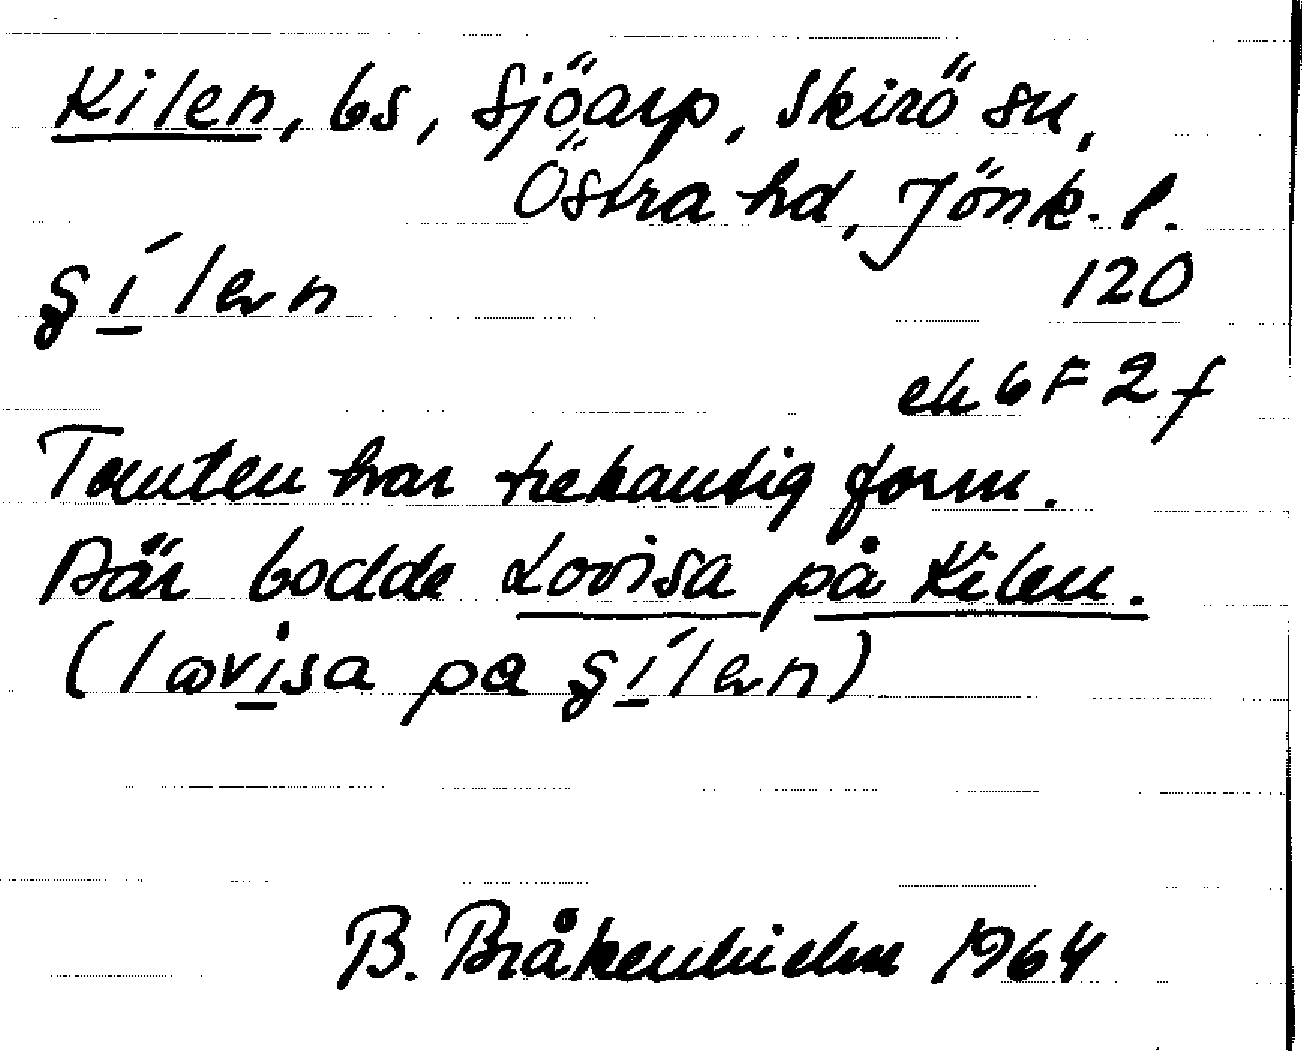 Kilen, bs, Sjöarp, Skirö sn,
Östra hd, Jönk. l.
120
ek 6 F 2 f
Tomten har trekantig form.
Där bodde Lovisa på Kilen.
B. Bråkenhielm 1964